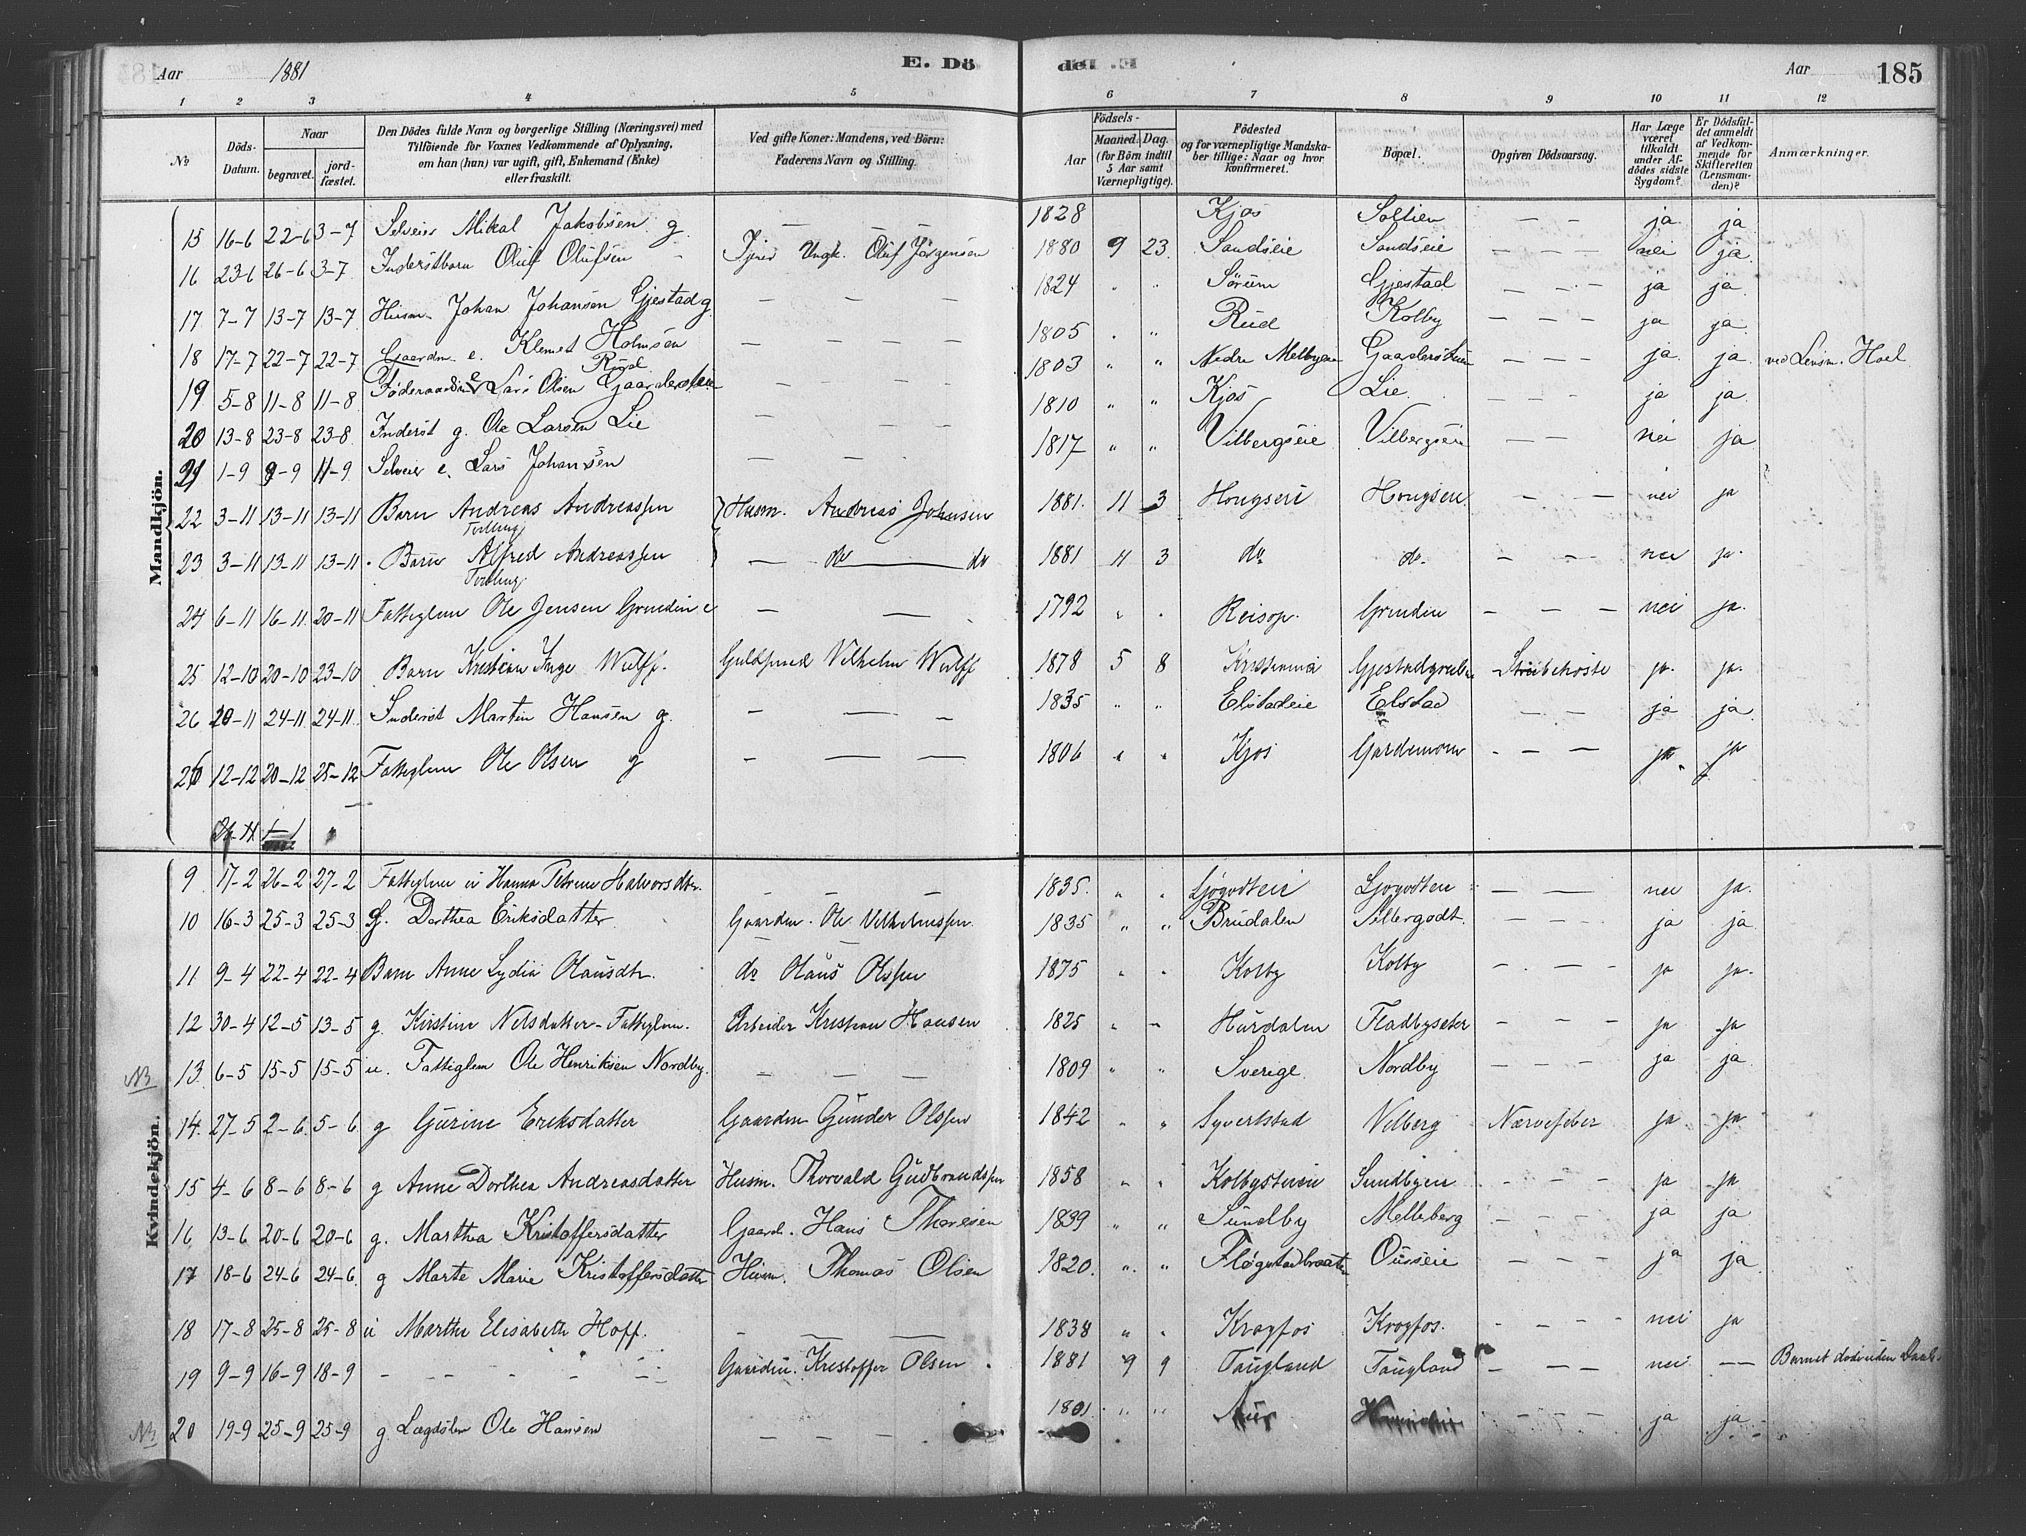 Aar 1881 E. Döde. Aar 185
1 2 3 4 5 6 7 8 9 10 11 12
No
Döds-Datum.
Naar
begravet. jordfæstet.
Den Dödes fulde Navn og borgerlige Stilling (Næringsvei) med
Tilföiende for Voxnes Vedkommende af Oplysning,
om han (hun) var ugift, gift, Enkemand (Enke)
eller fraskilt.
Ved gifte Koner: Mandens, ved Börn:
Faderens Navn og Stilling.
Födsels-
Aar
Maaned. Dag.
(for Börn indtil
5 Aar samt
Værnepligtige).
Födested
og for værnepligtige Mandskaber tillige: Naar og hvor
konfirmeret.
Bopæl.
Opgiven Dödsaarsag.
Har Læge
været
tilkaldt
under Afdödes sidste
Sygdom?
Er Dödsfaldet anmeldt
af Vedkommende for
Skifteretten
(Lensmanden)?
Anmærkninger.
Mandkjön.
15 16-6 22-6 3-7 Selveier Mikal Jakobsen g. — — — 1828 Kjos Soltien — — ja ja
16 23-6 26-6 3-7 Inderstbarn Oluf Olufsen Tjener Ungk. Oluf Jörgensen 1880 9 23 Sandseie Sandseie — — nei ja
17 7-7 13-7 13-7 Husm. Johan Johansen Gjestad g — — — 1824 " " Sörum Gjestad — — — ja ja
18 17-7 22-7 22-7 Gaardm. e. Klemet Holmsen Rud — — — 1805 " " Rud Kolby — — — ja ja
19 5-8 11-8 11-8 Föderaadsm. e Lars Olsen Gaarderseie — — — 1803 " " Nedre Melbye — — — ja ja ved Lensm. Hoel
20 13-8 23-8 23-8 Inderst g. Ole Larsen Lie — — — 1810 " " Kjos Lie — — ja ja
21 1-9 9-9 11-9 Selveier e. Lars Johansen — — 1817 " " Vilbergseie Vilbergseie — — nei ja
22 3-11 13-11 13-11 Barn Andreas Andreassen Tvilling Husm. Andreas Johansen 1881 11 3 — — nei ja
23 3-11 13-11 13-11 Barn Alfred Andreassen Tvilling — do — do 1881 11 3 do do — — — nei ja
24 6-11 16-11 20-11 Fattiglem Ole Jensen Grindin e — — 1792 " " Reisop. Grindin — — — nei ja
25 12-10 20-10 23-10 Barn Kristian Inge Wulff. Guldsmed Vilhelm Wulff 1878 5 8 Kristiania Strubehoste ja ja
26 20-11 24-11 24-11 Inderst Martin Hansen g. — — — 1835 " " Elstadeie Elstad — — ja ja
26 12-12 20-12 25-12 Fattiglem Ole Olsen g — — — 1806 " " Kjos Gardemoen — — — ja ja
Kvindekjön.
9 17-2 26-2 27-2 Fattiglem u Hanna Petrine Halvorsdtr. — — — 1835 " " Ljögodteie Ljogodteie — — nei ja
10 16-3 25-3 25-3 g. Dorthea Eriksdatter Gaardm. Ole Vilhelmssen 1835 " " Brudalen — — — ja ja
11 9-4 22-4 22-4 Barn Anne Lydia Olausdtr. do Olaus Olssen 1875 " " Kolby Kolby — — — ja ja
12 30-4 12-5 13-5 g. Kirstine Nilsdatter - Fattiglem. Arbeider Kristian Hansen 1825 " " Hurdalen Fladbyseter — — — ja ja
NB 13 6-5 15-5 15-5 u. Fattiglem Ole Henriksen Nordby. — — — 1809 " " Sverige Nordby — — — ja ja
14 27-5 2-6 5-6 g Gurine Eriksdatter Gaardm Gunder Olssen 1842 " " Syvertstad Vilberg Nervefeber ja ja
15 4-6 8-6 8-6 g Anne Dorthea Andreasdatter Husm. Thorvald Gudbrandssen 1858 " " Sundbyeie — — — ja ja
16 13-6 20-6 20-6 g. Marthea Kristoffersdatter Gaardm. Hans Thoresen 1839 " " Sundby Melleberg — — — ja ja
17 18-6 24-6 24-6 g Marte Marie Kristoffersdatter Husm. Thomas Olsen 1820 " " Flögstadbraaten Ousseie — — — ja ja
18 17-8 25-8 25-8 u Marthe Elisabeth Hoff. — — — 1838 " " Krogfos Krogfos. — — — nei ja
19 9-9 16-9 18-9 — — — — — Gaardm. Kristoffer Olsen 1881 9 9 Taugland Taugland — — — nei — Barnet döde uden Daab.
NB 20 19-9 25-9 25-9 g Lægdslem Ole Hansen — — — 1801 " " Aur — — — ja ja